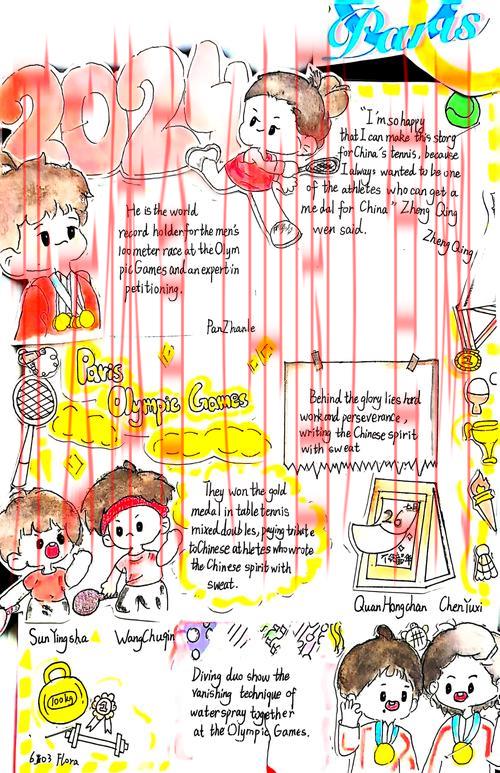 Paris
2024
"I'm so happy
that I can make this story
for China's tennis, because
I always wanted to be one
of the athletes who can get a
medal for China" Zheng Qing
wen said.
Zheng Qing
He is the world
record holder for the men's
100 meter race at the Olym
pic Games and an expert in
petitioning.
Pan Zhanle
Paris
Olympic Games
Behind the glory lies hard
work and perseverance,
writing the Chinese spirit
with sweat
They won the gold
medal in table tennis
mixed doubles, paying tribute
to Chinese athletes who wrote
the Chinese spirit with
sweat.
26
Quan Hongchan Chen Yuxi
Sun Yingsha Wang Chuqin
100kg
Diving duo show the
vanishing technique of
water spray together
at the Olympic Games.
Flora